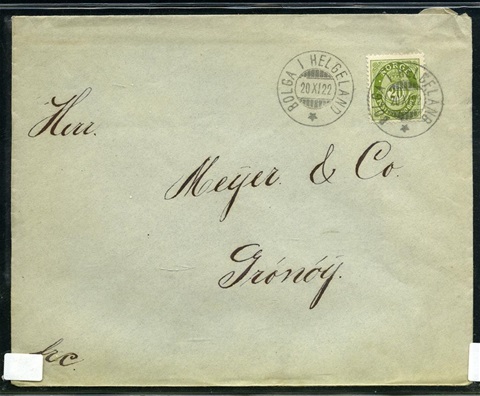 BOLGA I HELGELAND
20 XI 22
NORGE
20
HELGELAND
Herr.
Meÿer. & Co.
Grónóÿ.